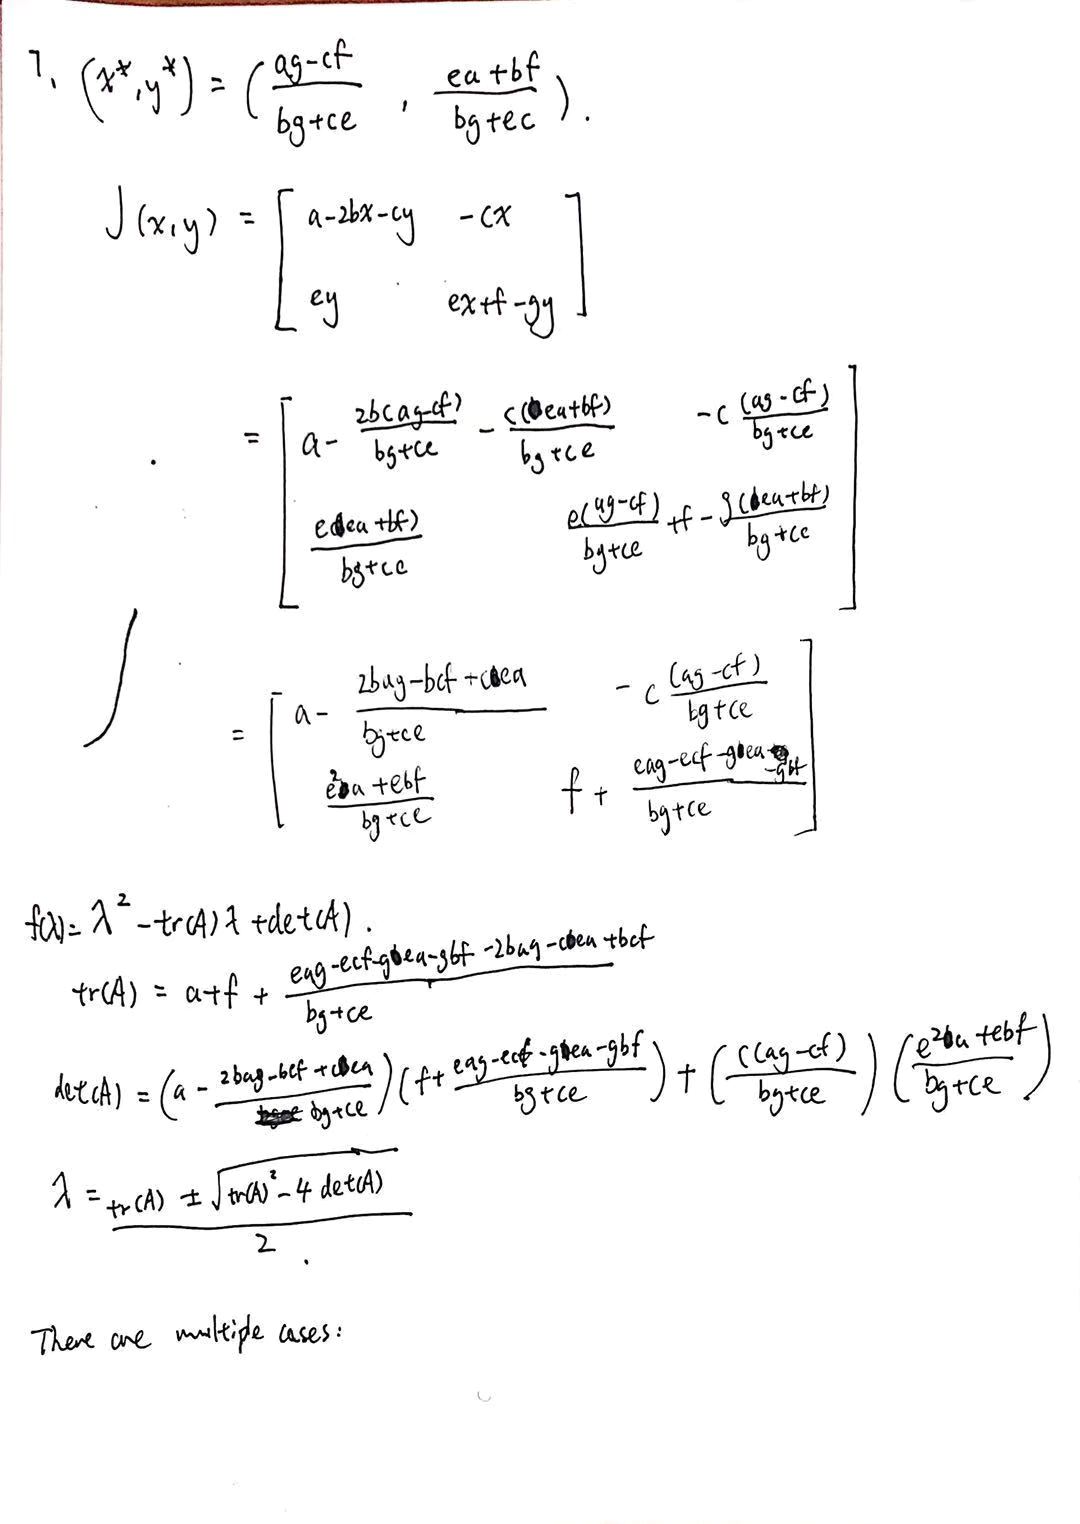 7. (x*, y*) = ( \frac{ag-cf}{bg+ce} , \frac{ea+bf}{bg+ec} ).
J(x,y) = [ a-2bx-cy   -cx
ey   ex+f-gy ]
= [ a - \frac{2b(ag-cf)}{bg+ce} - \frac{c(ea+bf)}{bg+ce}   -c \frac{(ag-cf)}{bg+ce}
\frac{e(ea+bf)}{bg+ce}   \frac{e(ag-cf)}{bg+ce} +f - \frac{g(ea+bf)}{bg+ce} ]
= [ a - \frac{2bag-bcf+cea}{bg+ce}   -c \frac{(ag-cf)}{bg+ce}
\frac{e^2a+ebf}{bg+ce}   f + \frac{eag-ecf-gea-gbf}{bg+ce} ]
f(λ)= λ^2 -tr(A)λ +det(A).
tr(A) = a+f + \frac{eag-ecf-gea-gbf-2bag-cea+bcf}{bg+ce}
det(A) = (a - \frac{2bag-bcf+cea}{bg+ce})(f+ \frac{eag-ecf-gea-gbf}{bg+ce}) + (\frac{c(ag-cf)}{bg+ce})(\frac{e^2a+ebf}{bg+ce})
λ = \frac{tr(A) ± \sqrt{tr(A)^2-4det(A)}}{2}.
There are multiple cases: